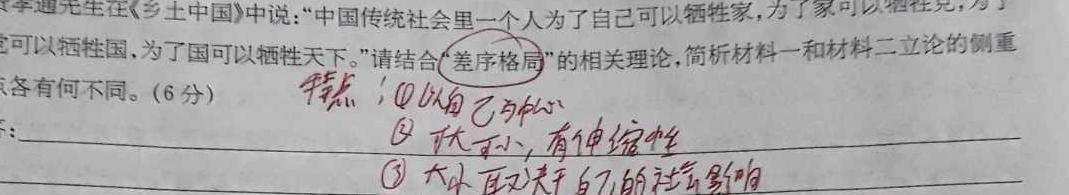 孝通先生在《乡土中国》中说:“中国传统社会里一个人为了自己可以牺牲家,为了家可以牺牲党,为了
党可以牺牲国,为了国可以牺牲天下。”请结合“差序格局”的相关理论,简析材料一和材料二立论的侧重
点各有何不同。(6分)
特点:①以自己为中心
②可大可小,有伸缩性
③大小取决于自己的社会影响